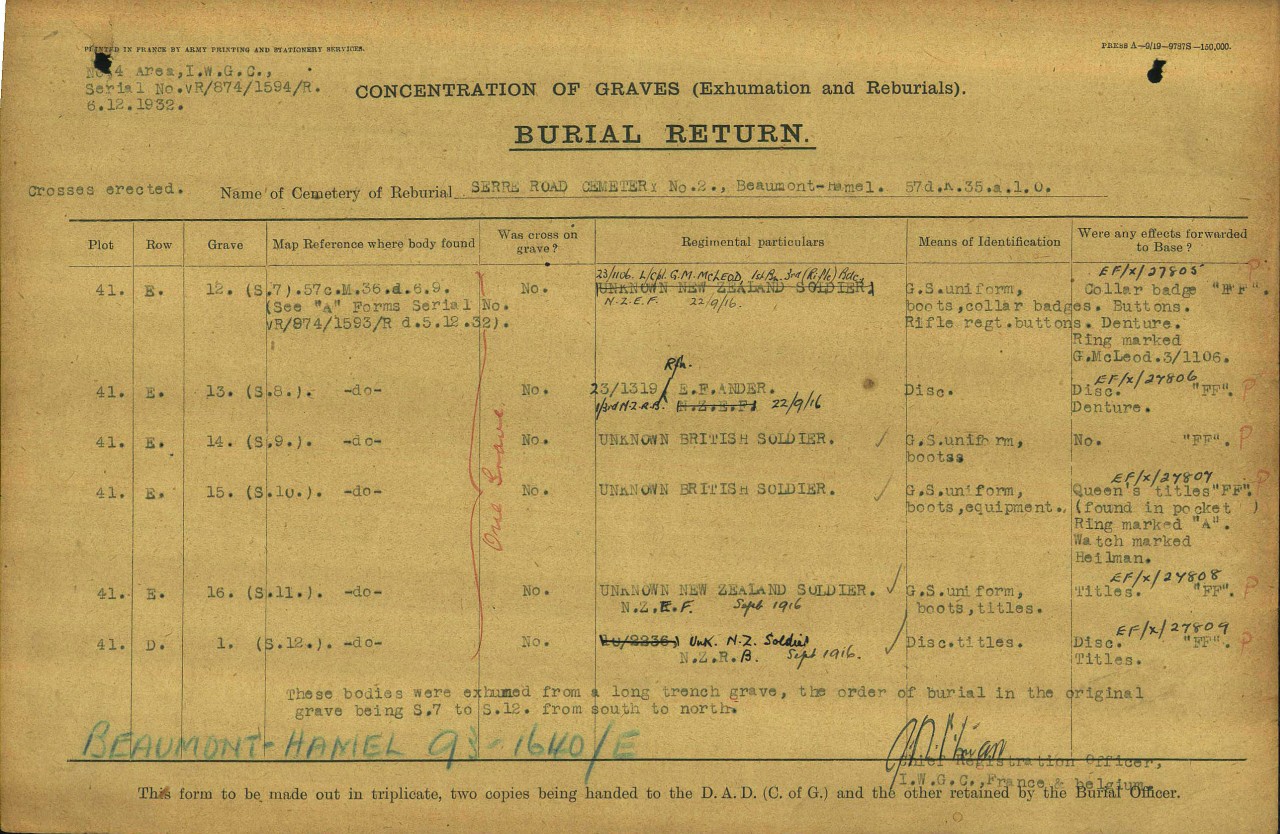 PRINTED IN FRANCE BY ARMY PRINTING AND STATIONERY SERVICES.
PRESS A—9/19—9787S—150,000.
No.4 Area,I.W.G.C.,
Serial No.vR/874/1594/R.
6.12.1932.
CONCENTRATION OF GRAVES (Exhumation and Reburials).
BURIAL RETURN.
Crosses erected.
Name of Cemetery of Reburial SERRE ROAD CEMETERY No.2., Beaumont-Hamel. 57d.K.35.a.1.0.
Plot Row Grave Map Reference where body found Was cross on grave? Regimental particulars Means of Identification Were any effects forwarded to Base?
23/1106. L/Cpl. G.M. McLEOD 1st Bn. 3rd (Rifle) Bde. EF/X/27805 P
41. E. 12. (S.7).57c.M.36.d.6.9. No. UNKNOWN NEW ZEALAND SOLDIER. G.S.uniform, Collar badge "FF".
(See "A" Forms Serial No. N.Z.E.F. 22/9/16. boots,collar badges. Buttons.
vR/874/1593/R d.5.12.32). Rifle regt.buttons. Denture.
Ring marked
G.McLeod.3/1106.
Rfn. EF/X/27806
41. E. 13. (S.8.). -do- No. 23/1319 E.F.ANDER. Disc. Disc. "FF". P
1/3rd N.Z.R.B. N.Z.E.F. 22/9/16 Denture.
41. E. 14. (S.9.). -do- No. UNKNOWN BRITISH SOLDIER. G.S.uniform, No. "FF". P
bootss
EF/X/27807
41. E. 15. (S.10.). -do- No. UNKNOWN BRITISH SOLDIER. G.S.uniform, Queen's titles"FF". P
boots,equipment. (found in pocket )
Ring marked "A".
Watch marked
Heilman.
One Grave
EF/X/27808
41. E. 16. (S.11.). -do- No. UNKNOWN NEW ZEALAND SOLDIER. G.S.uniform, Titles. "FF". P
N.Z.E.F. Sept 1916 boots,titles.
EF/X/27809
41. D. 1. (S.12.). -do- No. Unk. N.Z. Soldier Disc.titles. Disc. "FF". P
N.Z.R.B. Sept 1916. Titles.
These bodies were exhumed from a long trench grave, the order of burial in the original
grave being S.7 to S.12. from south to north.
BEAUMONT-HAMEL 93-1640/E
Chief Registration Officer,
I.W.G.C.,France & Belgium.
This form to be made out in triplicate, two copies being handed to the D.A.D. (C. of G.) and the other retained by the Burial Officer.